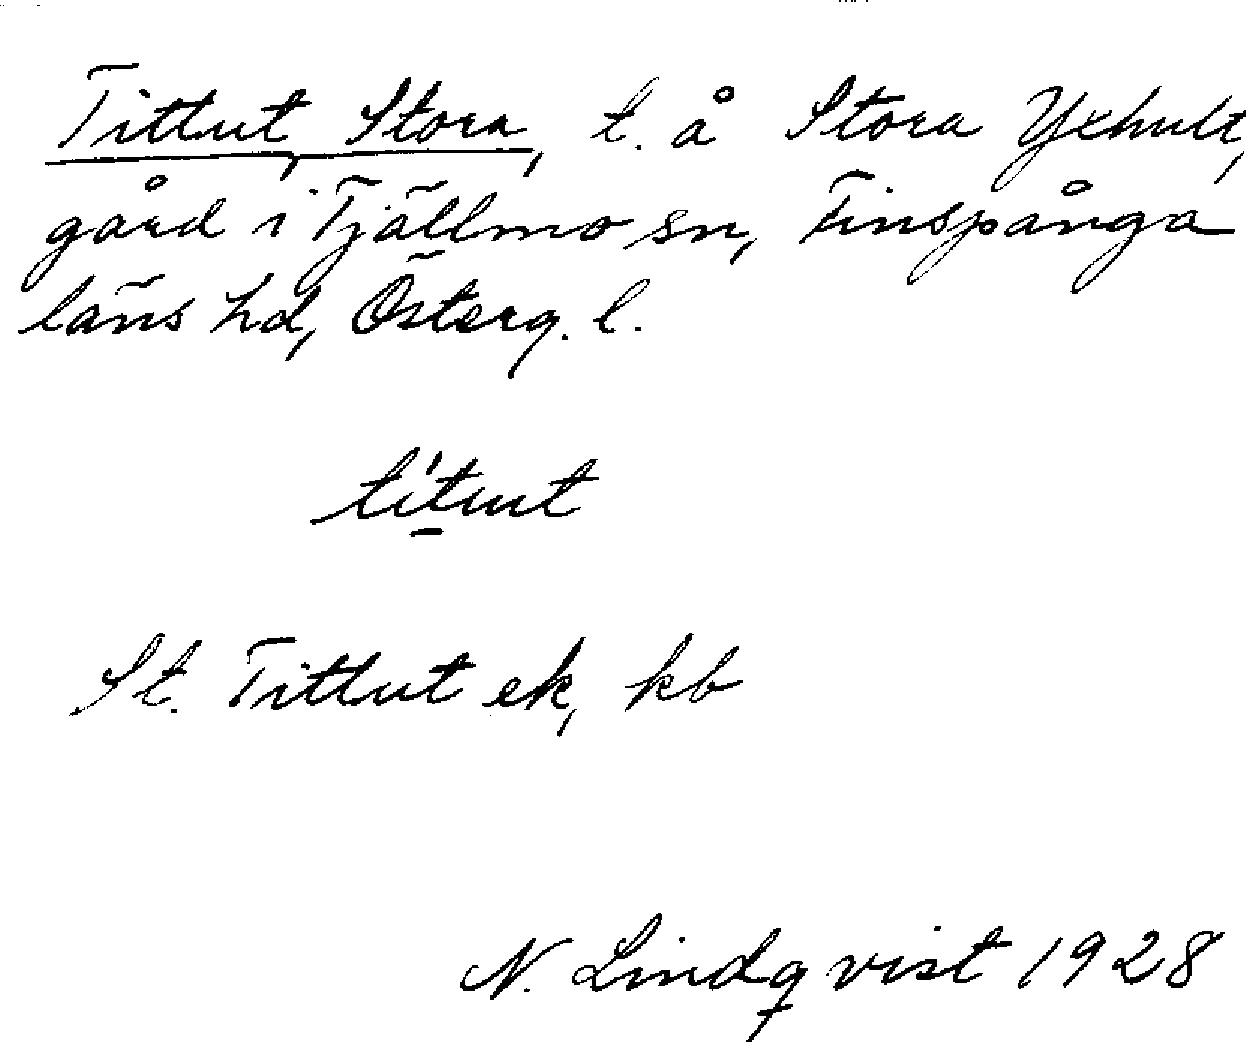 Tittut, Stora, t. å Stora Yxhult,
gård i Tjällmo sn, Finspånga
läns hd, Österg. l.
títut
St. Tittut ek, kb
N. Lindqvist 1928